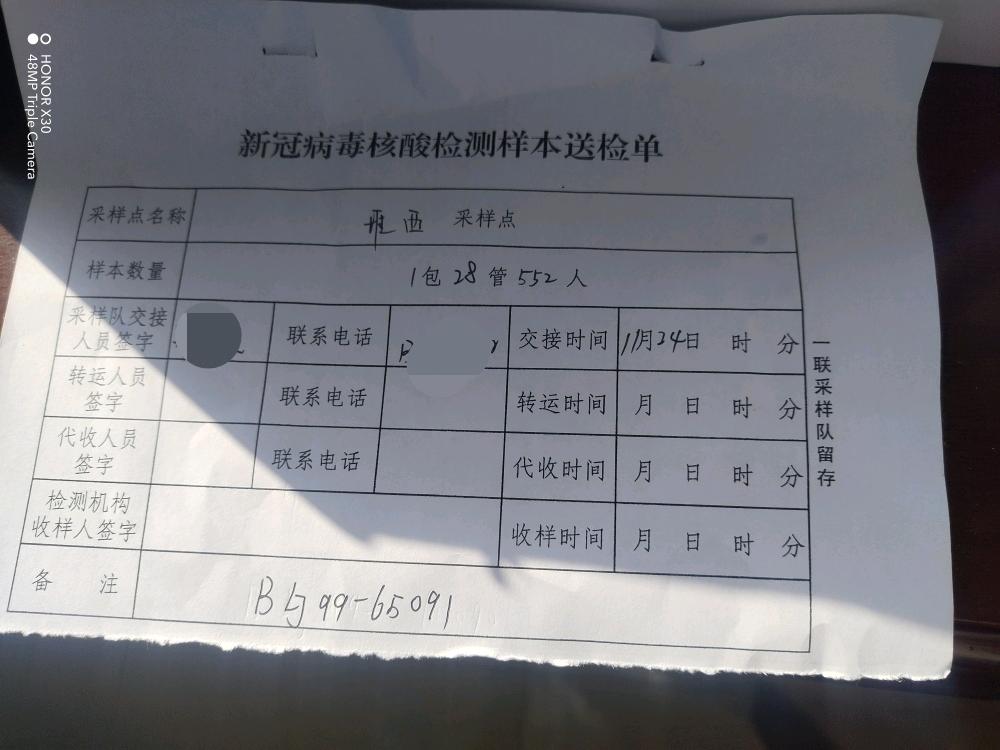 HONOR X30
48MP Triple Camera
新冠病毒核酸检测样本送检单
采样点名称 西 采样点
样本数量 1包 28 管 552 人
采样队交接人员签字 联系电话 交接时间 11月24日 时 分
转运人员签字 联系电话 转运时间 月 日 时 分
代收人员签字 联系电话 代收时间 月 日 时 分
检测机构收样人签字 收样时间 月 日 时 分
备 注
99-65091
一联采样队留存